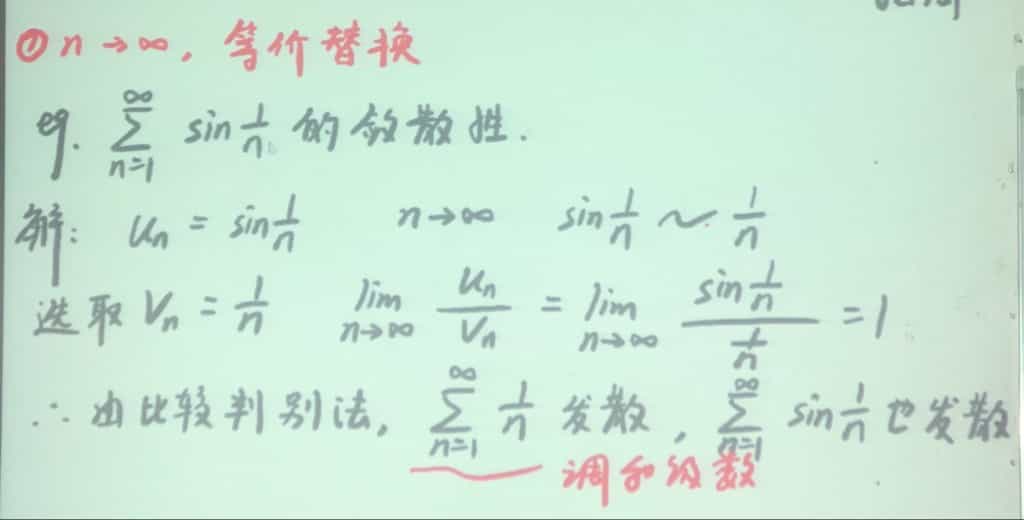 ① n→∞, 等价替换
eg. ∑_{n=1}^{∞} sin 1/n 的敛散性.
解: u_n = sin 1/n n→∞ sin 1/n ~ 1/n
选取 V_n = 1/n lim_{n→∞} u_n/V_n = lim_{n→∞} (sin 1/n)/(1/n) = 1
∴ 由比较判别法, ∑_{n=1}^{∞} 1/n 发散, ∑_{n=1}^{∞} sin 1/n 也发散
调和级数